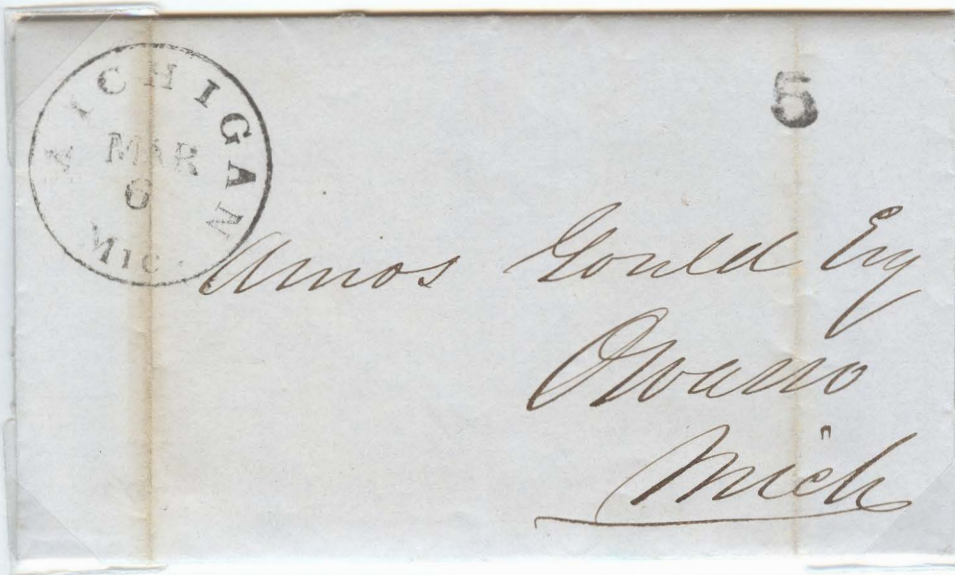 MICHIGAN
MAR
6
MIC.
5
Amos Gould Esq
Owasso
Mich